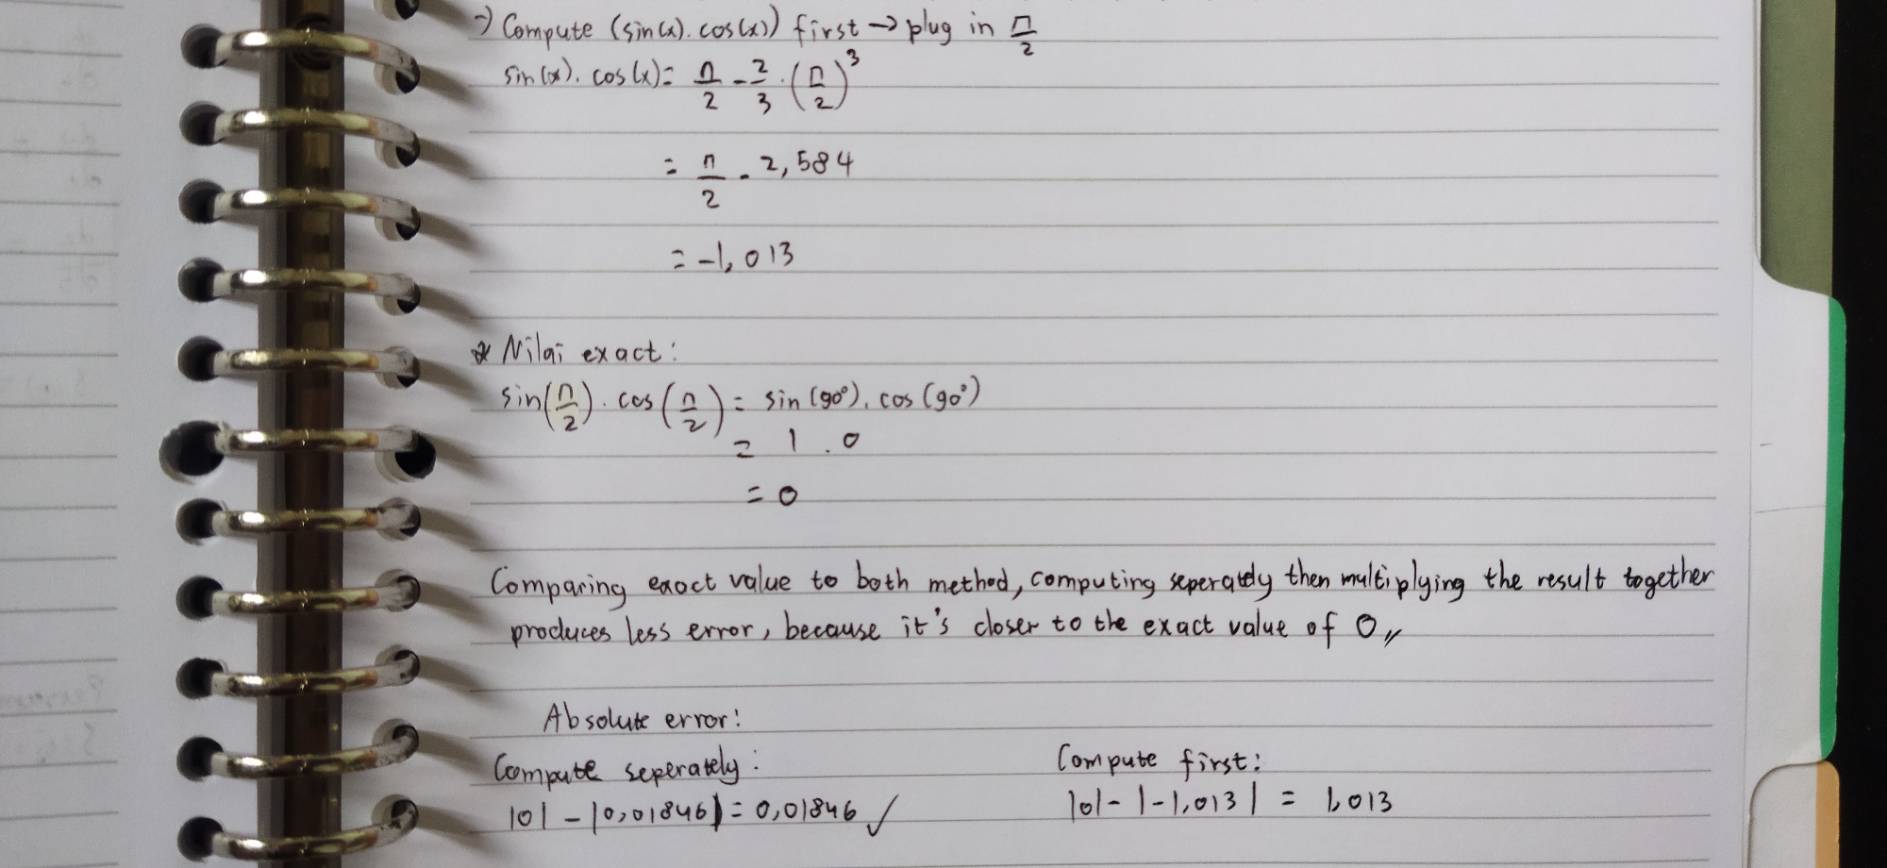 →) Compute (sin(x). cos(x)) first → plug in π/2
sin(x). cos(x) = π/2 - 2/3 . (π/2)^3
= π/2 - 2,584
= -1,013
* Nilai exact:
sin(π/2) . cos(π/2) = sin (90°). cos (90°)
= 1 . 0
= 0
Comparing exact value to both method, computing seperately then multiplying the result together
produces less error, because it's closer to the exact value of 0 //
Absolute error:
Compute seperately:
|0| - |0,01846| = 0,01846 ✓
Compute first:
|0| - |-1,013| = 1,013